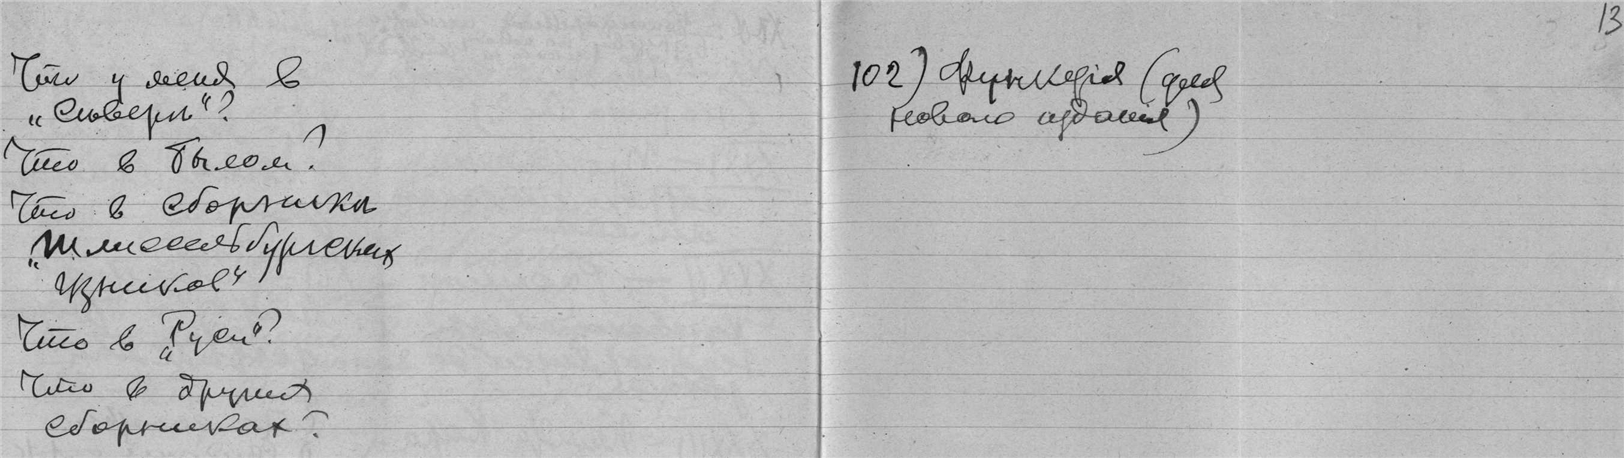 Что у меня в
„Сѣверѣ“?
Что в Былом?
Что в сборникѣ
„Шлиссельбургских
Узников“
Что в „Руси“?
Что в других
сборниках?
13
102) Функцiя (для
нового изданiя)